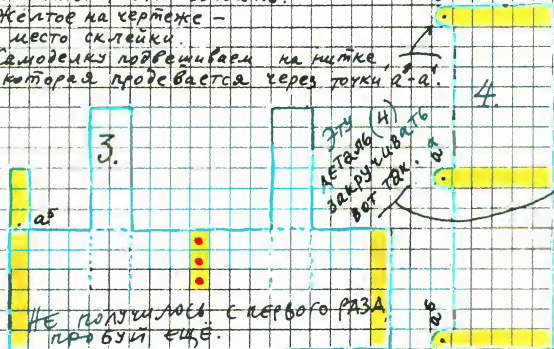 Желтое на чертеже –
место склейки.
Самоделку подвешиваем на нитке,
которая продевается через точки а⁵-а¹.
3.
4.
Эту (4)
деталь
закручивать
вот так.
а⁵
Не получилось с первого раза,
пробуй ещё.